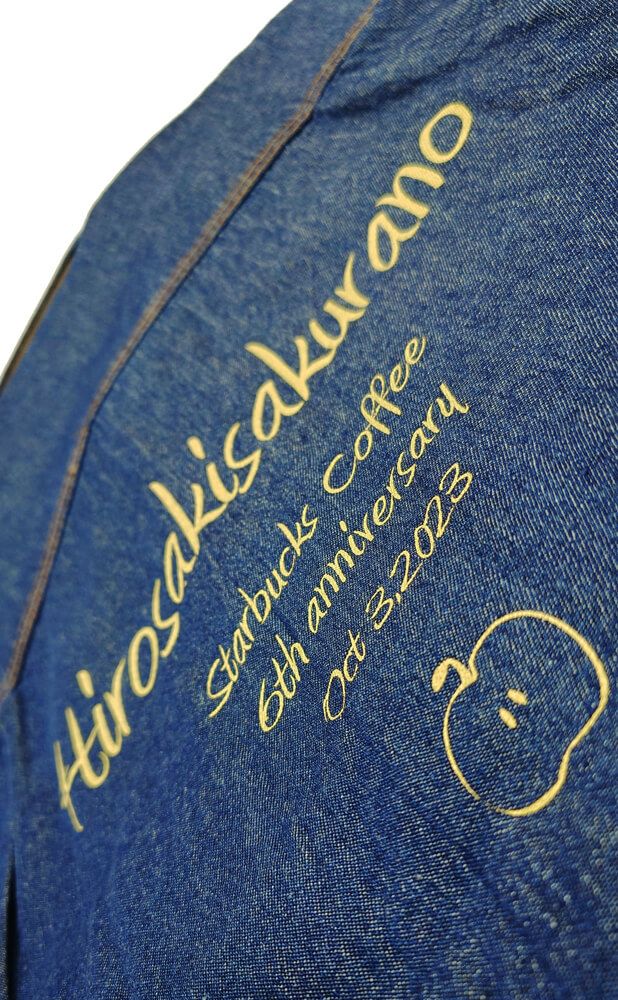 Hirosakisakurano
Starbucks Coffee
6th anniversary
Oct 3,2023